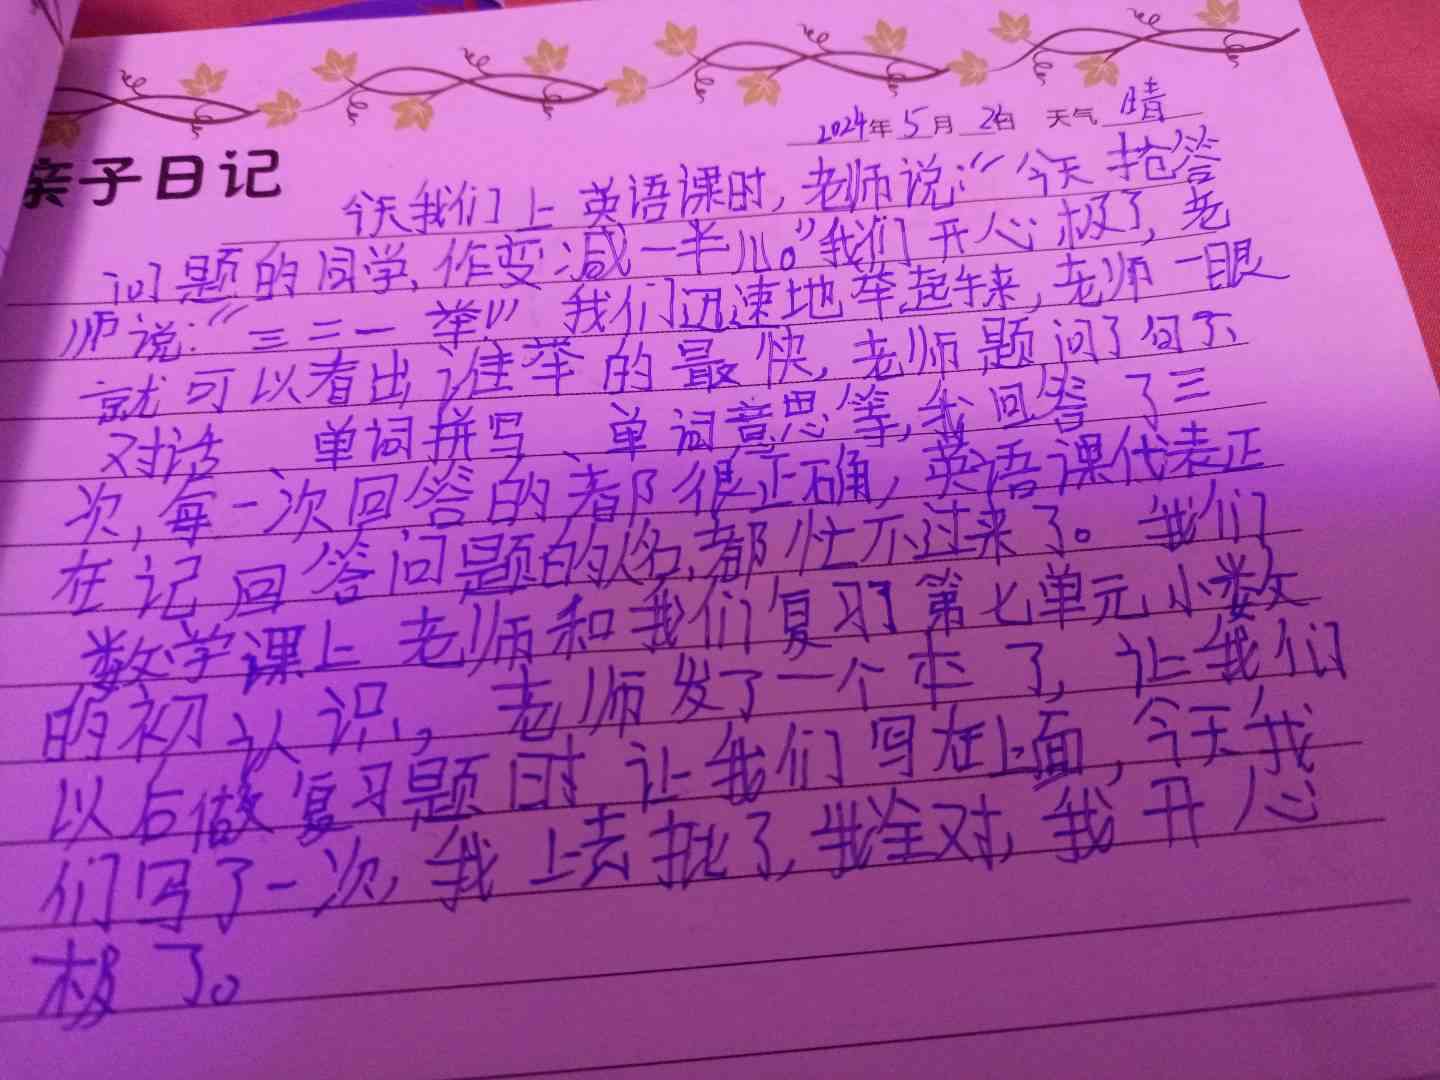 2024年5月26日 天气 晴
亲子日记
今天我们上英语课时,老师说:“今天抢答
问题的同学,作变减一半儿。”我们开心极了,老
师说:“三二一举!”我们迅速地举起手来,老师一眼
就可以看出谁举的最快,老师题问了句子、
对话、单词拼写、单词意思等,我回答了三
次,每一次回答的都很正确,英语课代表正
在记回答问题的人名,都忙不过来了。我们
数学课上老师和我们复习了第七单元小数
的初认识,老师发了一个本了,让我们
以后做复习题时让我们写在上面,今天我
们写了一次,我上去批了,我全对,我开心
极了。